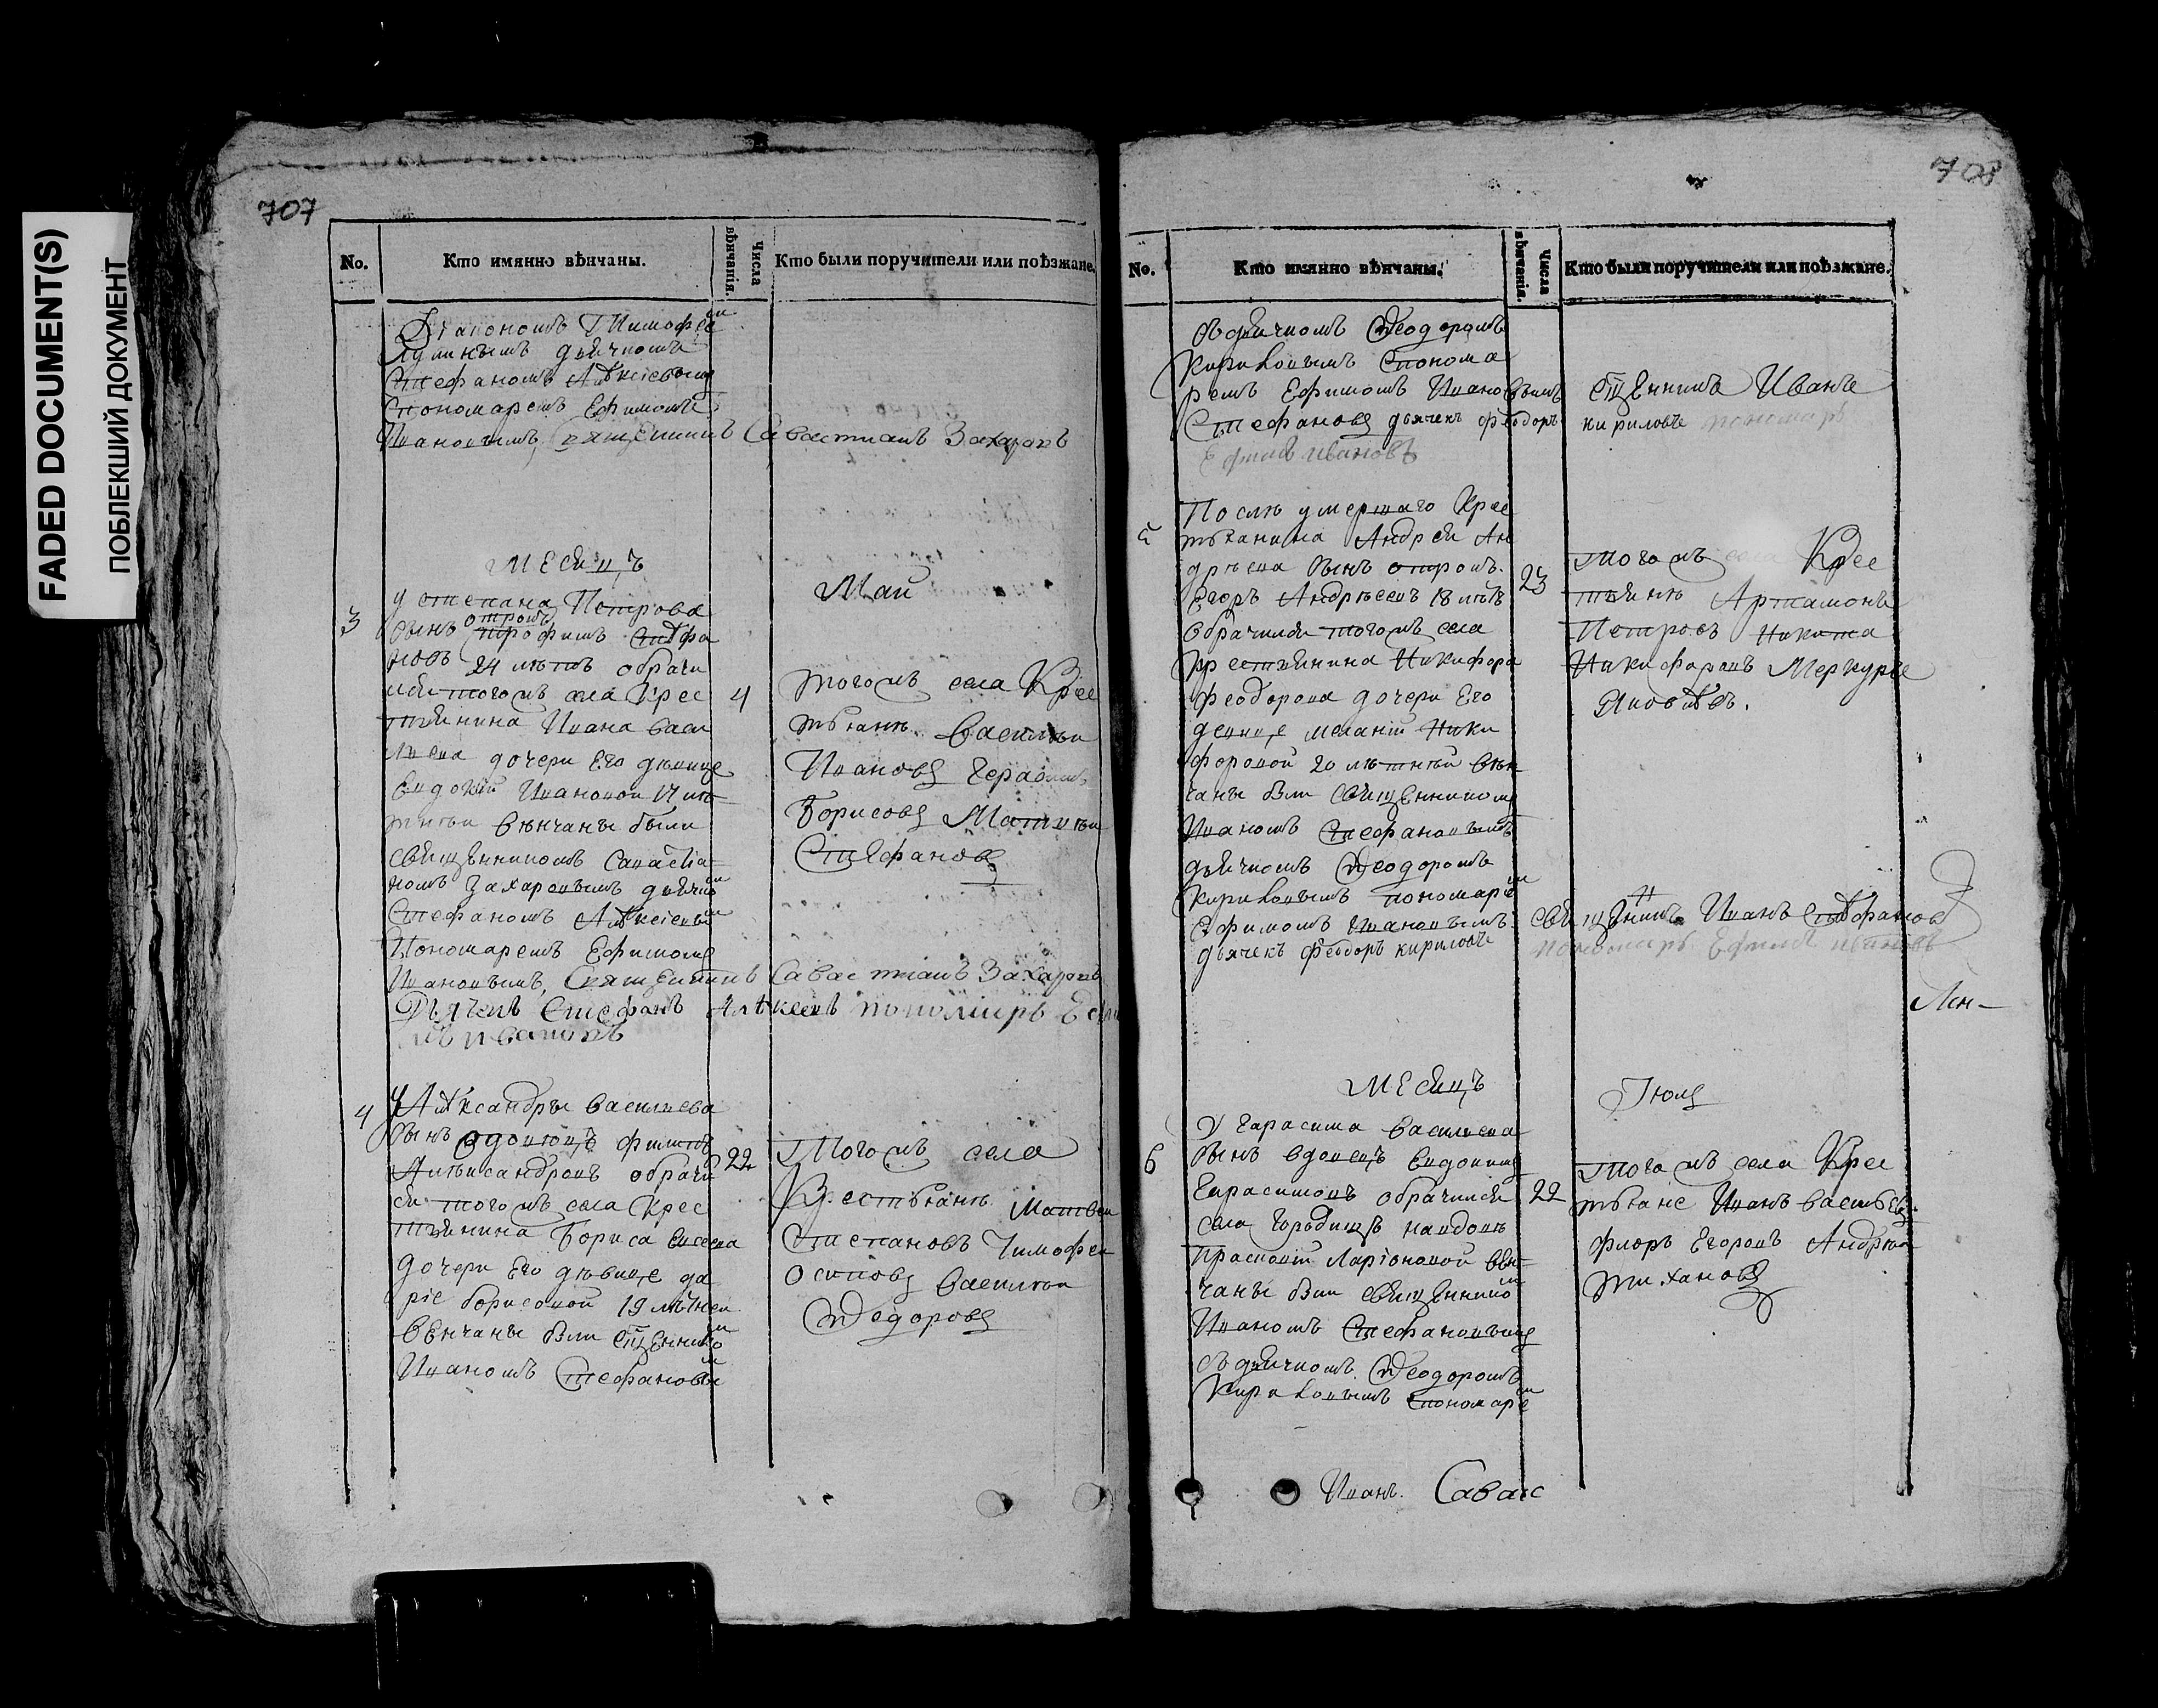 FADED DOCUMENT(S)
ПОБЛЕКШИЙ ДОКУМЕНТ
707
No.
Кто имянно вѣнчаны.
Числа вѣнчанія.
Кто были поручители или поѣзжане.
Дїакономъ Тимофѣе
дьячкомъ
Стефаномъ Алѣксіевым
Спономаремъ Ефимомъ
Ивановымъ, Священникъ Савастианъ Захаровъ
Месяцъ
Маи
3
у степана Петрова
сынъ отрокъ трофимъ Стѣфа
новъ 24 лѣтъ обрачи
лся тогожъ села Крес
4
тьянина Ивана васи
лиева дочери Его девице
Евдокїи Ивановои 17 лѣ
тнеи вѣнчаны были
священникомъ Савастїа
номъ Захаровымъ дьячко
Стефаномъ Алѣксіевы
Пономаремъ Ефимомъ
Ивановымъ, Священникъ Савастианъ Захаровъ
Дьячекъ Стефанъ Алѣксеевъ пономарь Ефи
мъ Ивановъ
тогожъ села Крес
тьяне василеи
Ивановъ Герасимъ
Борисовъ Матвеи
Стефановъ
4
У Алѣксандры васильева
сынъ вдовецъ филипъ
Алѣксандровъ обрачи
22
ся тогожъ села Крес
тьянина Бориса
дочери Его девице да
рїе борисовой 19 лѣтнеи
вѣнчаны были сщенико
Иваномъ Стефановы
тогожъ села
Крестьяне Матвеи
Степановъ Тимофеи
Осиповъ василеи
Феодоровъ
708
No.
Кто имянно вѣнчаны.
Числа вѣнчанія.
Кто были поручители или поѣзжане.
съ дьячкомъ Феодоромъ
Кириловымъ Спонома
ремъ Ефимомъ Ивановымъ сщенникъ Иванъ
Стефановъ дьячекъ феодоръ кириловъ пономарь
Ефимъ ивановъ
5
После умершаго Крес
тьянина Андреи Ан
дреева сынъ отрокъ
Егоръ Андреевъ 18 лѣтъ
23
обрачился тогожъ села
крестьянина Никифора
феодорова дочери Его
девице меланїи Ники
форовой 20 лѣтнеи вѣн
чаны были священникомъ
Иваномъ Стефановымъ
дьячкомъ Феодоромъ
Кириловымъ пономаре
Ефимомъ Ивановымъ священникъ Иванъ Стѣфановъ
дьячекъ феодоръ кириловъ пономарь Ефимъ ивановъ
тогожъ села Крес
тьяне Артамонъ
Петровъ Никита
Никифоровъ Меркурье
Яковлѣвъ.
Месяцъ
Іюль
6
У Герасима васильева
сынъ вдовецъ Евдокимъ
Герасимовъ обрачился
22
села Городищъ навдове
Прасковїи Ларїоновой вѣн
чаны были священнико
Иваномъ Стефановымъ
съ дьячкомъ Феодоромъ
Кириловымъ Спономаре
тогожъ села Крес
тьяне Иванъ васильевъ
флоръ Егоровъ Андрѣи
Иванъ. Савас